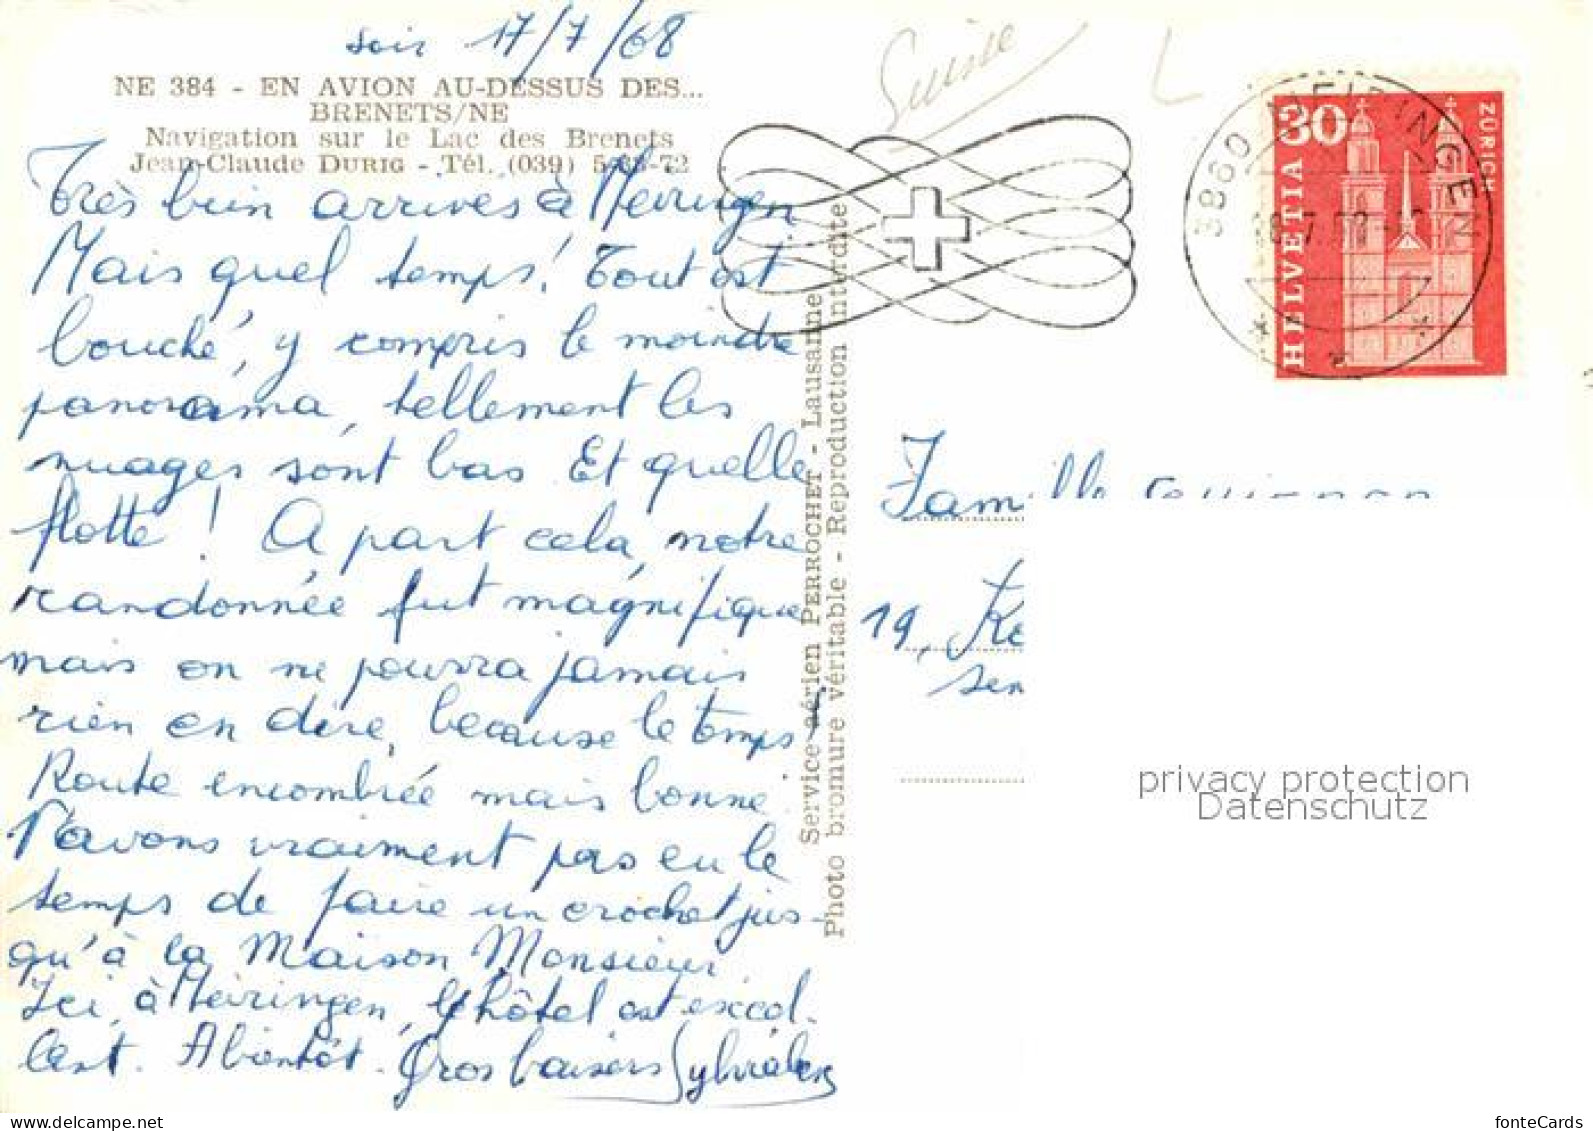 soir 17/7/68
Suisse
NE 384 - EN AVION AU-DESSUS DES...
BRENETS/NE
Navigation sur le Lac des Brenets
Jean-Claude DURIG - Tél. (039) 5-33-72
Très bien arrivés à Meiringen
Mais quel temps! Tout est
bouché, y compris le moindre
panorama, tellement les
nuages sont bas Et quelle
flotte! A part cela, notre
randonnée fut magnifique
mais on ne pourra jamais
rien en dire, because le temps!
Route encombrée mais bonne
N'avons vraiment pas eu le
temps de faire un crochet jus-
qu'à la Maison Monsieur
Ici, à Meiringen, l'hôtel est excel-
lent. A bientôt. Gros baisers
Service aérien PERROCHET - Lausanne
Photo bromure véritable - Reproduction interdite
8860 MEIRINGEN
30
HELVETIA
ZÜRICH
Famille
19,
privacy protection
Datenschutz
fonteCards